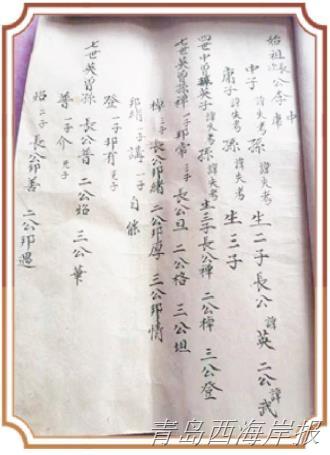 始祖 長公李 中 庸
中子 諱失考 孫 諱失考 生二子 長公 諱 英 二公 諱 武
庸子 諱失考 孫 諱失考 生三子
四世中曾孫英子 諱失考 孫 諱失考 生三子長公禪 二公樟 三公登
七世英曾孫禪 一子 邦常 三子 長公旦 二公恪 三公坦
樟 三子 長公邦緒 二公邦厚 二公邦情
邦緒 一子 講 一子 自能
登 一子 邦有 乏子
七世英曾孫 長公普 二公炤 三公華
普 一子 介 乏子
炤 二子 長公邦善 二公邦遇
青岛西海岸报